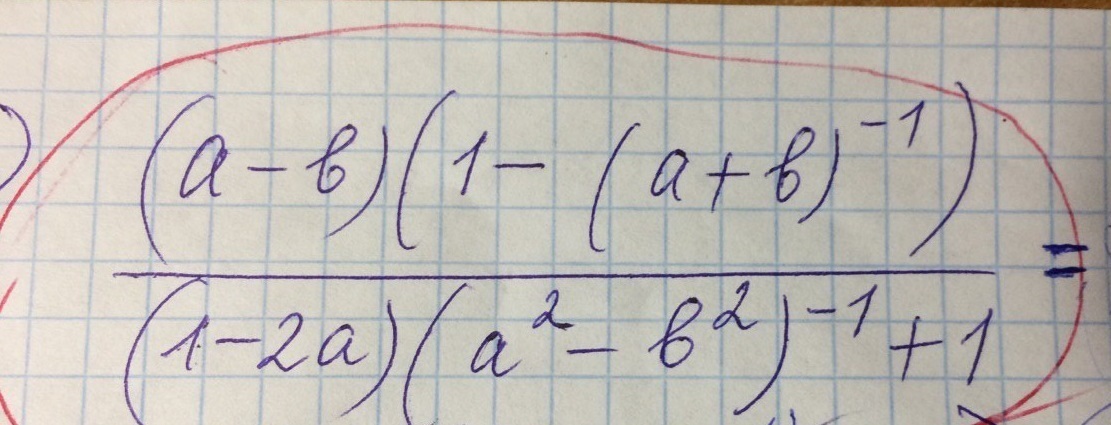 (a-b)(1-(a+b)⁻¹)
(1-2a)(a²-b²)⁻¹+1 =